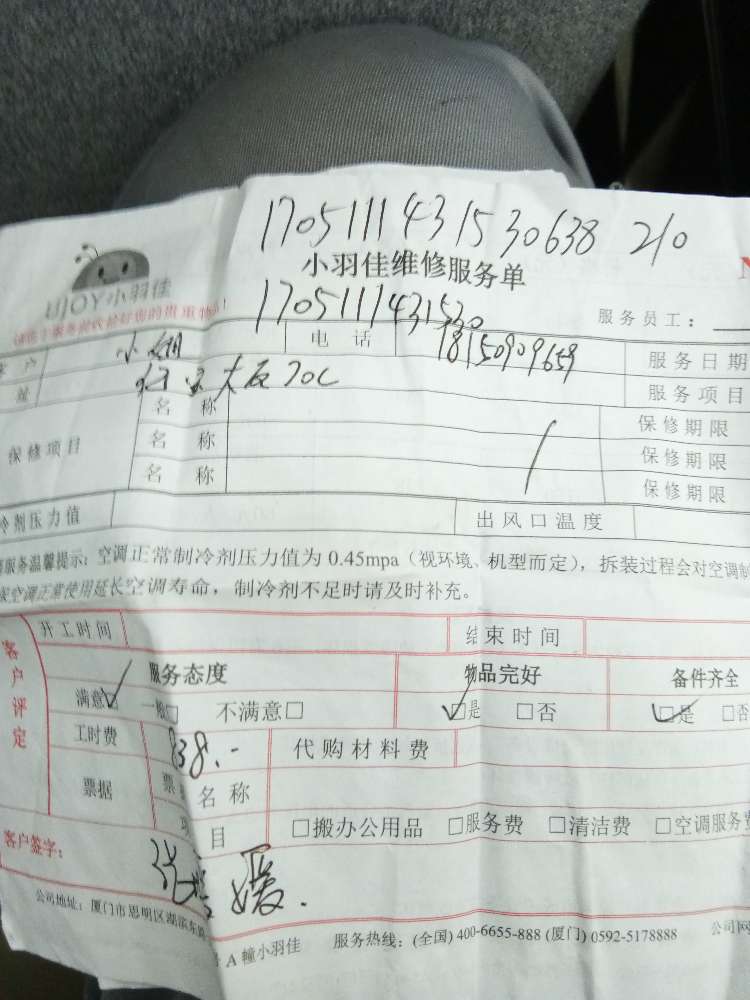 170511143153063８ 210
UJOY小羽佳
小羽佳维修服务单
1705111431530
服务员工：
户 小姐 电话 18150909659 服务日期
址 大厦70C 服务项目
保修项目 名称 保修期限
名称 保修期限
名称 保修期限
冷剂压力值 出风口温度
服务温馨提示：空调正常制冷剂压力值为 0.45mpa（视环境、机型而定），拆装过程会对空调制
空调正常使用延长空调寿命，制冷剂不足时请及时补充。
客户评定
开工时间 结束时间
服务态度 物品完好 备件齐全
满意☑ 一般□ 不满意□ ☑是 □否 ☑是 □否
工时费 838.- 代购材料费
票据 票 名称
项目 □搬办公用品 □服务费 □清洁费 □空调服务费
客户签字： 媛.
公司地址：厦门市思明区湖滨东路 A幢小羽佳 服务热线：(全国) 400-6655-888 (厦门) 0592-5178888 公司网